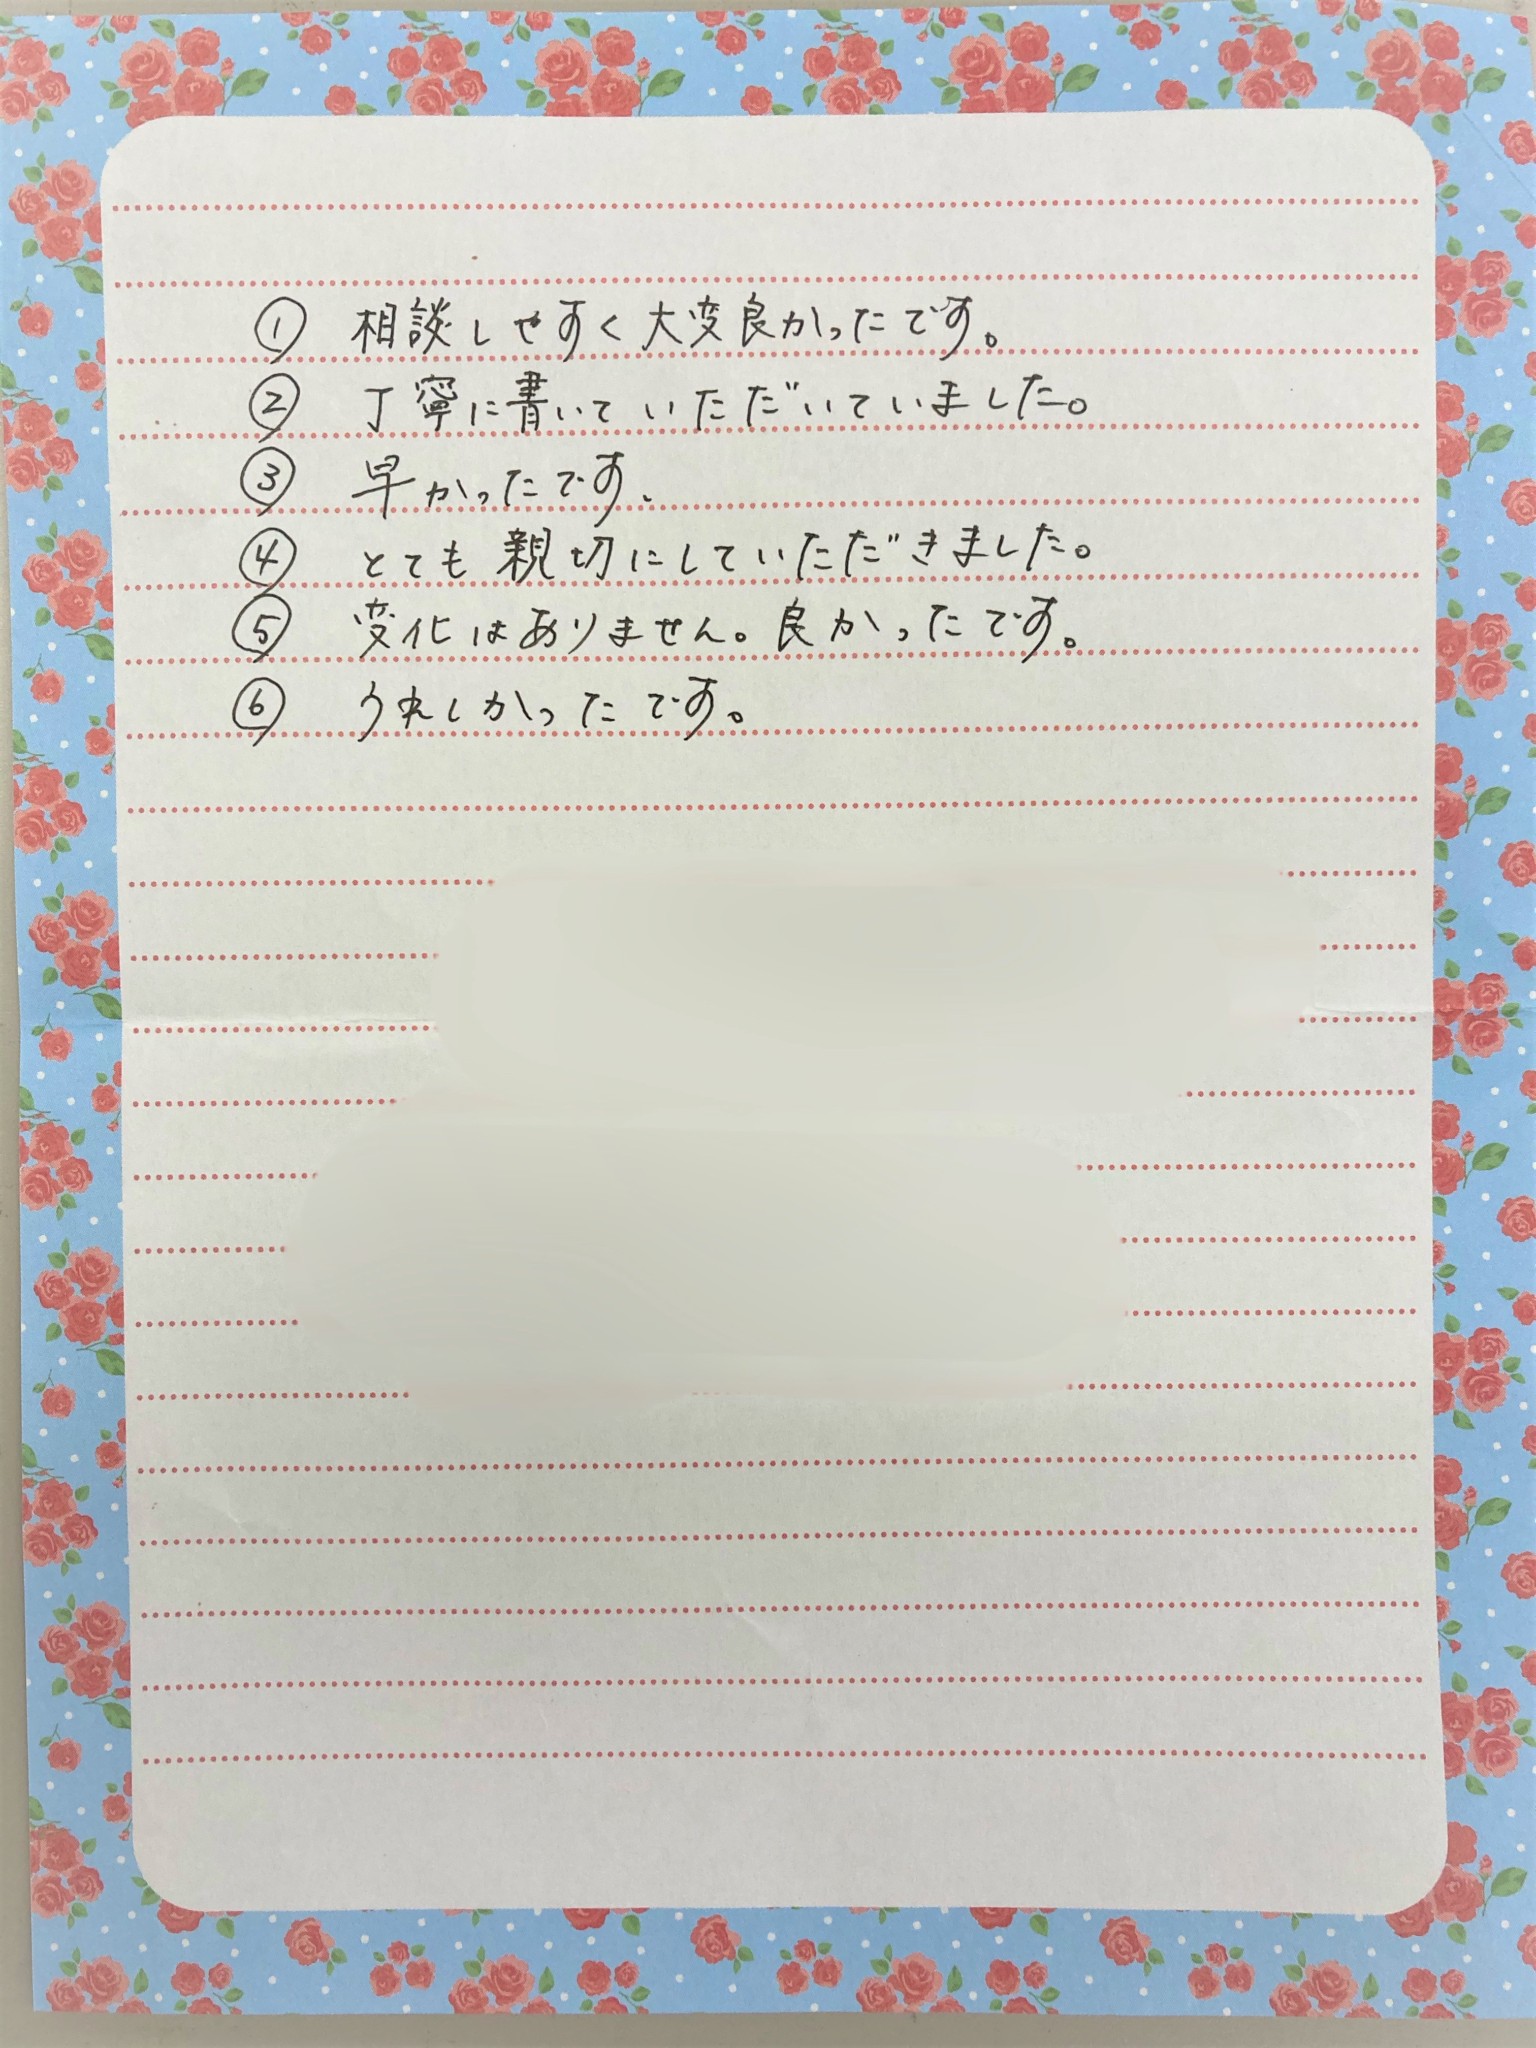 ① 相談しやすく大変良かったです。
② 丁寧に書いていただいていました。
③ 早かったです.
④ とても親切にしていただきました。
⑤ 変化はありません。良かったです。
⑥ うれしかったです。